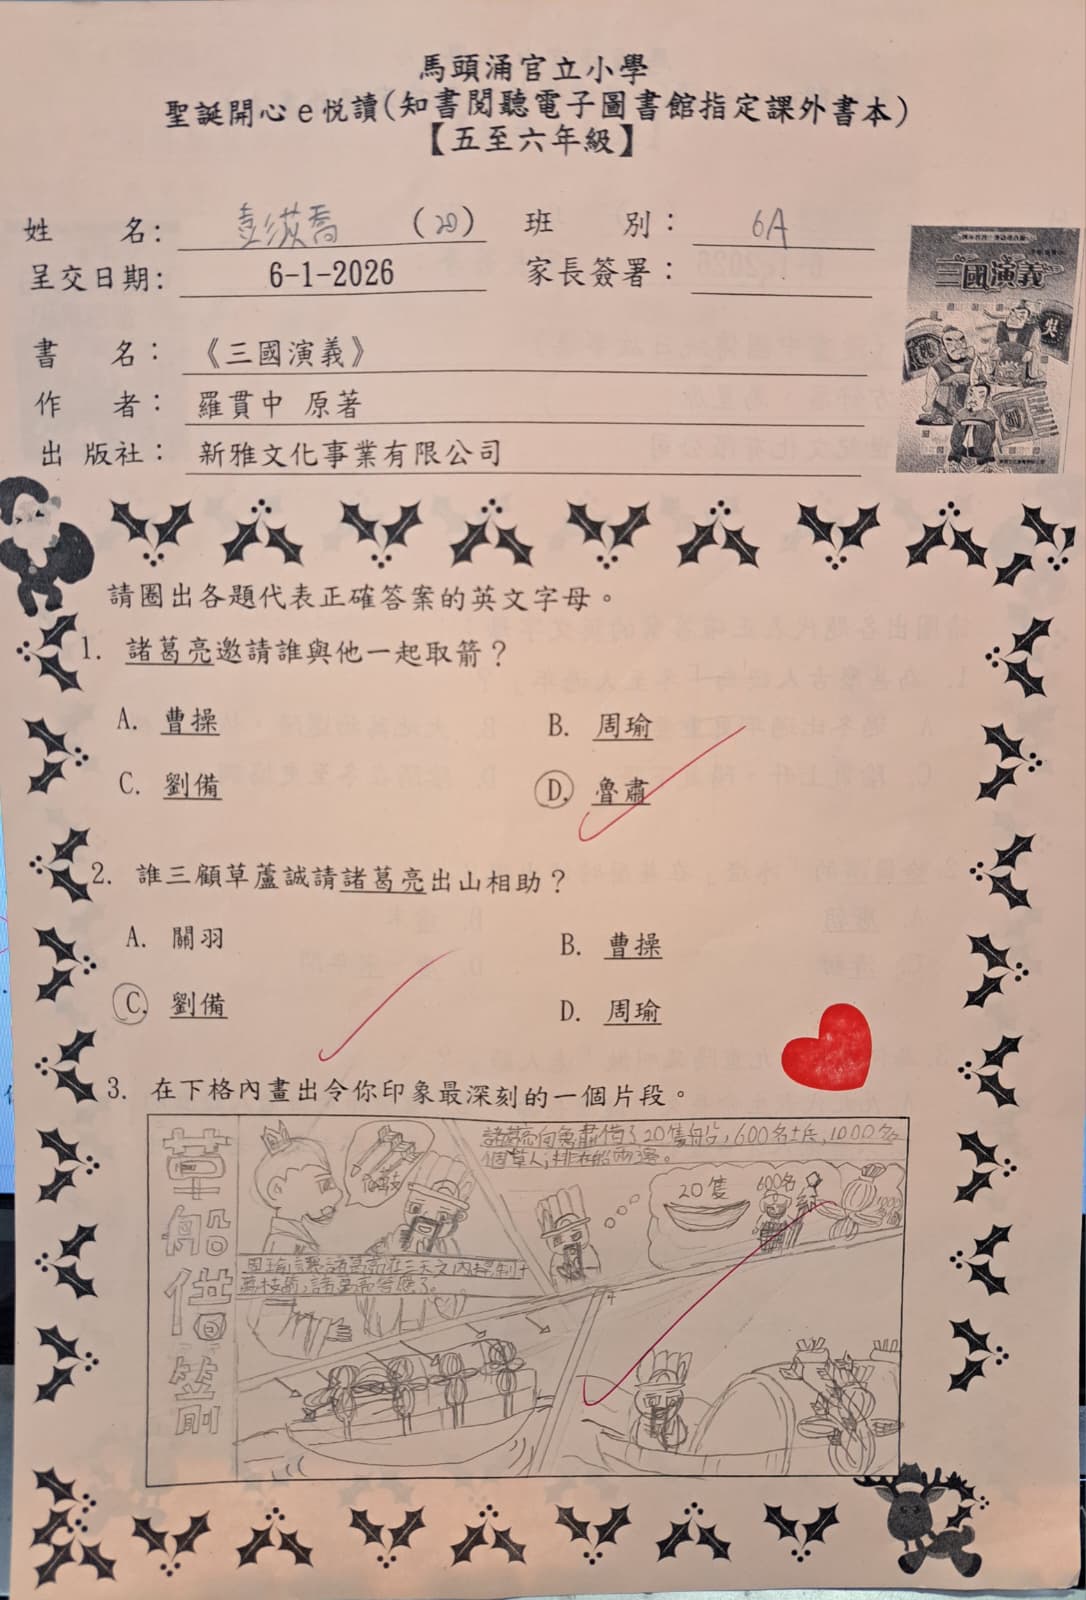 馬頭涌官立小學
聖誕開心e悅讀(知書閱聽電子圖書館指定課外書本)
【五至六年級】
姓 名: (20) 班 別: 6A
呈交日期: 6-1-2026 家長簽署:
書 名: 《三國演義》
作 者: 羅貫中 原著
出 版社: 新雅文化事業有限公司
三國演義
吳
請圈出各題代表正確答案的英文字母。
1. 諸葛亮邀請誰與他一起取箭?
A. 曹操 B. 周瑜
C. 劉備 D. 魯肅
2. 誰三顧草蘆誠請諸葛亮出山相助?
A. 關羽 B. 曹操
C. 劉備 D. 周瑜
3. 在下格內畫出令你印象最深刻的一個片段。
草船借箭
諸葛亮向魯肅借了20隻船,600名士兵,1000多
個草人,排在船兩邊。
20隻
600名
周瑜讓諸葛亮在三天之內得到十
萬枝箭,諸葛亮答應了。
4